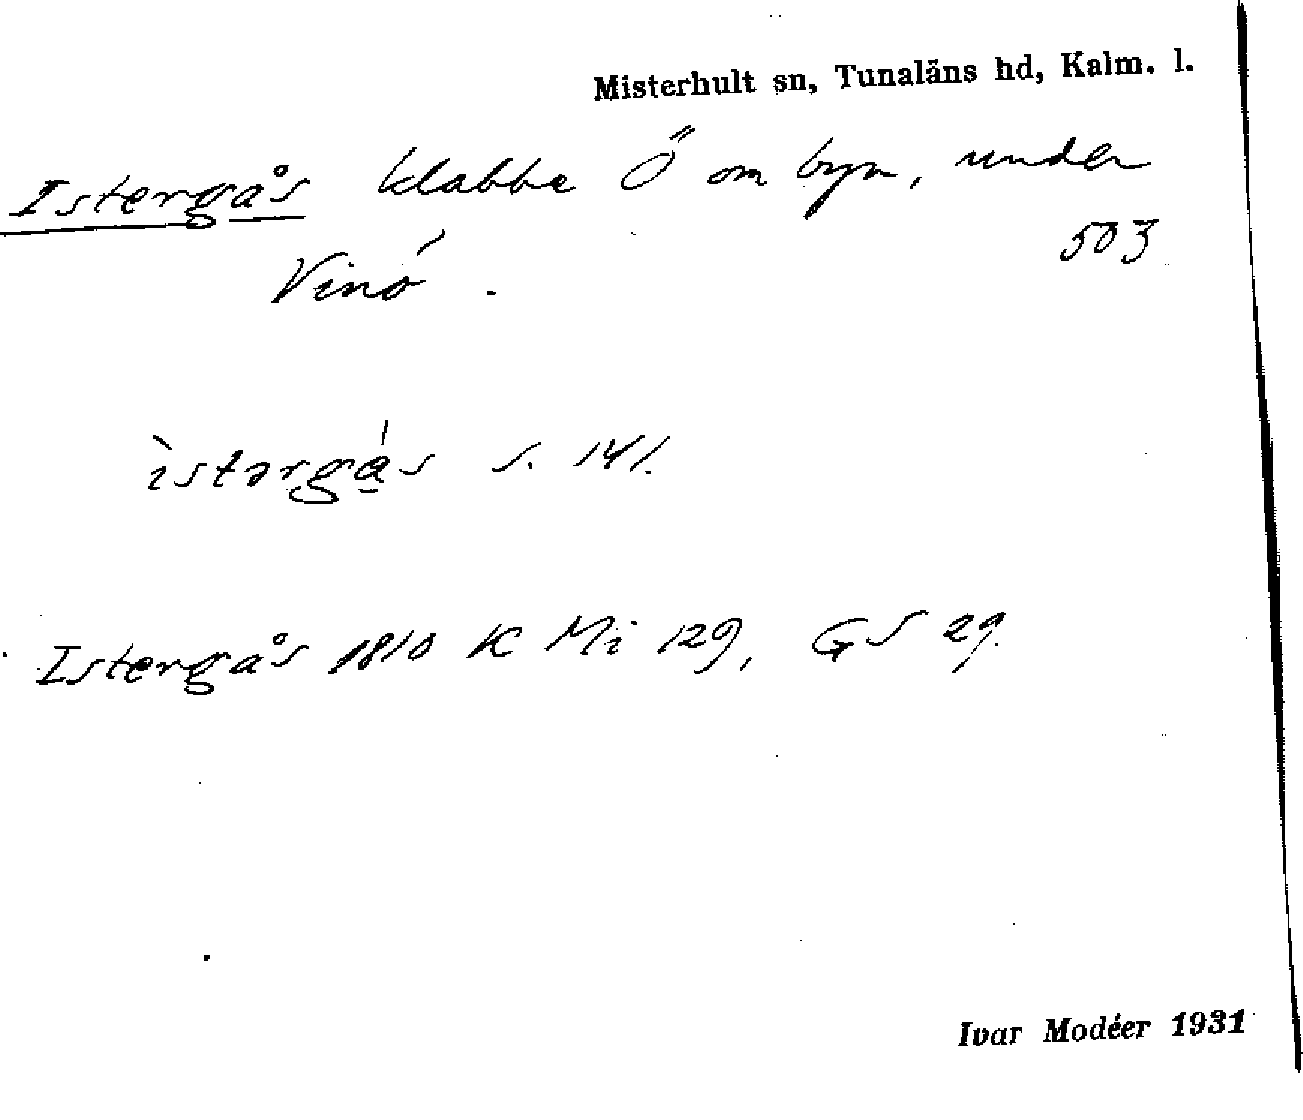 Misterhult sn, Tunaläns hd, Kalm. l.
Istergås klabbe Ö om byn, under
503
Vinö.
ìstərgás s. 141.
Istergås 1810 K Mi 129, GS 29.
Ivar Modéer 1931